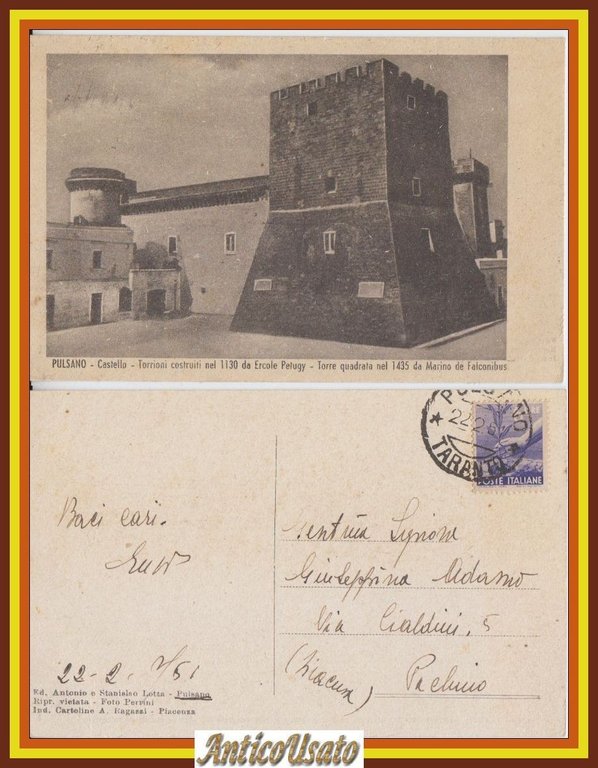 PULSANO - Castello - Torrioni costruiti nel 1130 da Ercole Petugy - Torre quadrata nel 1435 da Marino de Falconibus
PULSANO
22.2.5
TARANTO
POSTE ITALIANE
Baci cari.
Gentma Signora
Giuseppina Adamo
Via Cialdini, 5
(Siracusa) Pachino
22-2-/51
Ed. Antonio e Stanislao Lotta - Pulsano
Ripr. vietata - Foto Perrini
Ind. Cartoline A. Ragazzi - Piacenza
AnticoUsato